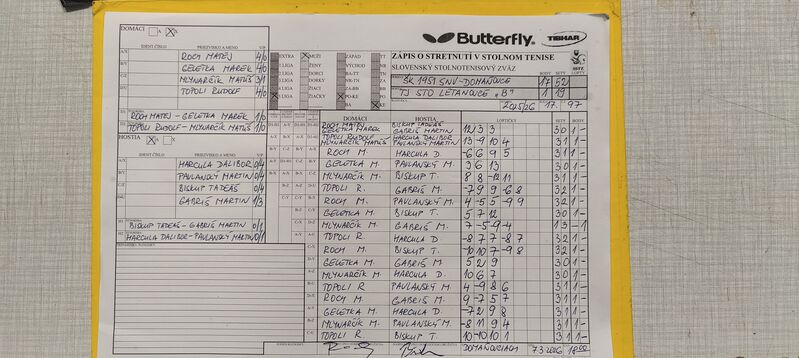 DOMÁCI A X
Butterfly TIBHAR
IDENT. ČÍSLO PRIEZVISKO A MENO V/P
ROCH MATEJ 4/0
GELETKA MAREK 4/0
MLYNARČÍK MATÚŠ 3/1
TOPOLI RUDOLF 4/0
ROCH MATEJ - GELETKA MAREK 1/0
TOPOLI RUDOLF - MLYNARČÍK MATÚŠ 1/0
EXTRA MUŽI ZÁPAD TT
I.LIGA ŽENY VÝCHOD NR
DORCI BA-TT TN
DORKY NR-TN ZA
ŽIACI ZA-BB BB
ŽIAČKY PO-KE PO
BA KE
ZÁPIS O STRETNUTÍ V STOLNOM TENISE
SLOVENSKÝ STOLNOTENISOVÝ ZVÄZ
BODY SETY LOPTY
ŠK 1951 SNV-DOMAŇOVCE 17 52
TJ STO LETANOVCE "B" 1 19
2025/26 17. 97
HOSTIA A X
IDENT. ČÍSLO PRIEZVISKO A MENO V/P
HARCULA DALIBOR 0/4
PAVLANSKÝ MARTIN 0/4
BISKUP TADEÁŠ 0/4
GABRIŠ MARTIN 1/3
BISKUP TADEÁŠ - GABRIŠ MARTIN 0/1
HARCULA DALIBOR - PAVLANSKÝ MARTIN 0/1
DOMÁCI HOSTIA LOPTIČKY SETY BODY
ROCH MATEJ BISKUP TADEÁŠ
GELETKA MAREK GABRIŠ MARTIN 12 3 3 3 0 1 -
TOPOLI RUDOLF HARCULA DALIBOR
MLYNARČÍK MATÚŠ PAVLANSKÝ MARTIN 13 -9 10 4 3 1 1 -
ROCH M. HARCULA D. -6 6 9 5 3 1 1 -
GELETKA M. PAVLANSKÝ M. 3 6 13 3 0 1 -
MLYNARČÍK M. BISKUP T. 8 8 -12 11 3 1 1 -
TOPOLI R. GABRIŠ M. -7 9 9 -6 8 3 2 1 -
ROCH M. PAVLANSKÝ M. 4 -5 5 -9 9 3 2 1 -
GELETKA M. BISKUP T. 5 7 12 3 0 1 -
MLYNARČÍK M. GABRIŠ M. 7 -5 -9 -4 1 3 - 1
TOPOLI R. HARCULA D. -8 7 7 -8 7 3 2 1 -
ROCH M. BISKUP T. -10 10 7 -9 8 3 2 1 -
GELETKA M. GABRIŠ M. 5 2 9 3 0 1 -
MLYNARČÍK M. HARCULA D. 10 6 7 3 0 1 -
TOPOLI R. PAVLANSKÝ M. 4 -9 8 6 3 1 1 -
ROCH M. GABRIŠ M. 9 -7 5 7 3 1 1 -
GELETKA M. HARCULA D. -7 2 9 8 3 1 1 -
MLYNARČÍK M. PAVLANSKÝ M. -8 11 9 4 3 1 1 -
TOPOLI R. BISKUP T. 10 -10 10 1 3 1 1 -
DOMAŇOVCIACH 7.3.2026 18:00